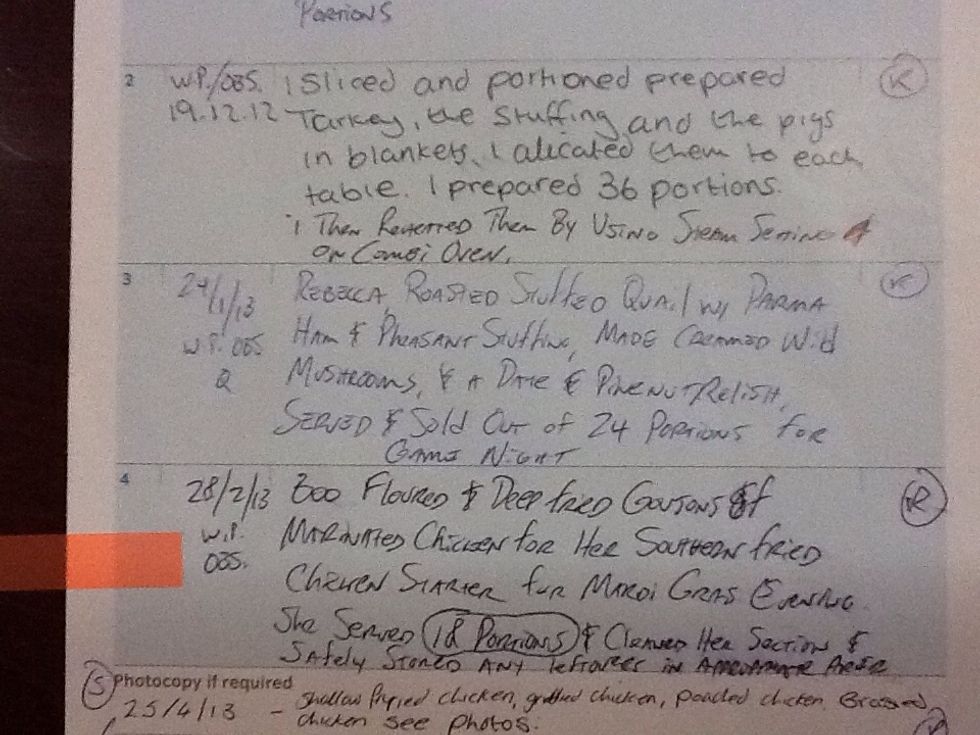 PORTIONS
2 W.P./OBS. I Sliced and portioned prepared K
19.12.12 Turkey, the Stuffing and the pigs
in blankets. I alicated them to each
table. I prepared 36 portions.
i Then Them By Using Steam Setting
on Combi Oven.
3 24/1/13 REBECCA, ROASTED Stuffed Quail w/ PARMA K
W.P. OBS HAM & PHEASANT Stuffing, MADE CREAMED Wild
Q MUSHROOMS, & A DATE & PINENUT Relish,
SERVED & Sold Out of 24 PORTIONS for
GAME NIGHT
4 28/2/13 Boo FLOURED & DEEP fried GOUJONS Of R
W.P. MARINATED CHICKEN for HER SOUTHERN fried
OBS. CHICKEN STARTER for MARDI GRAS EVENING.
She SERVED 18 PORTIONS & CLEANED HER SECTION &
SAfely STORED ANY leftovers in APPROPRIATE
5 Photocopy if required
25/4/13 - Shallow chicken, grilled chicken, poached chicken,
chicken see photos.